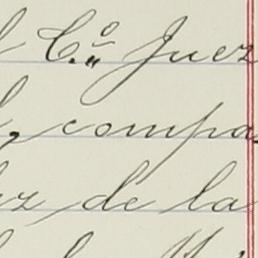 C.º Juez
compa
de la